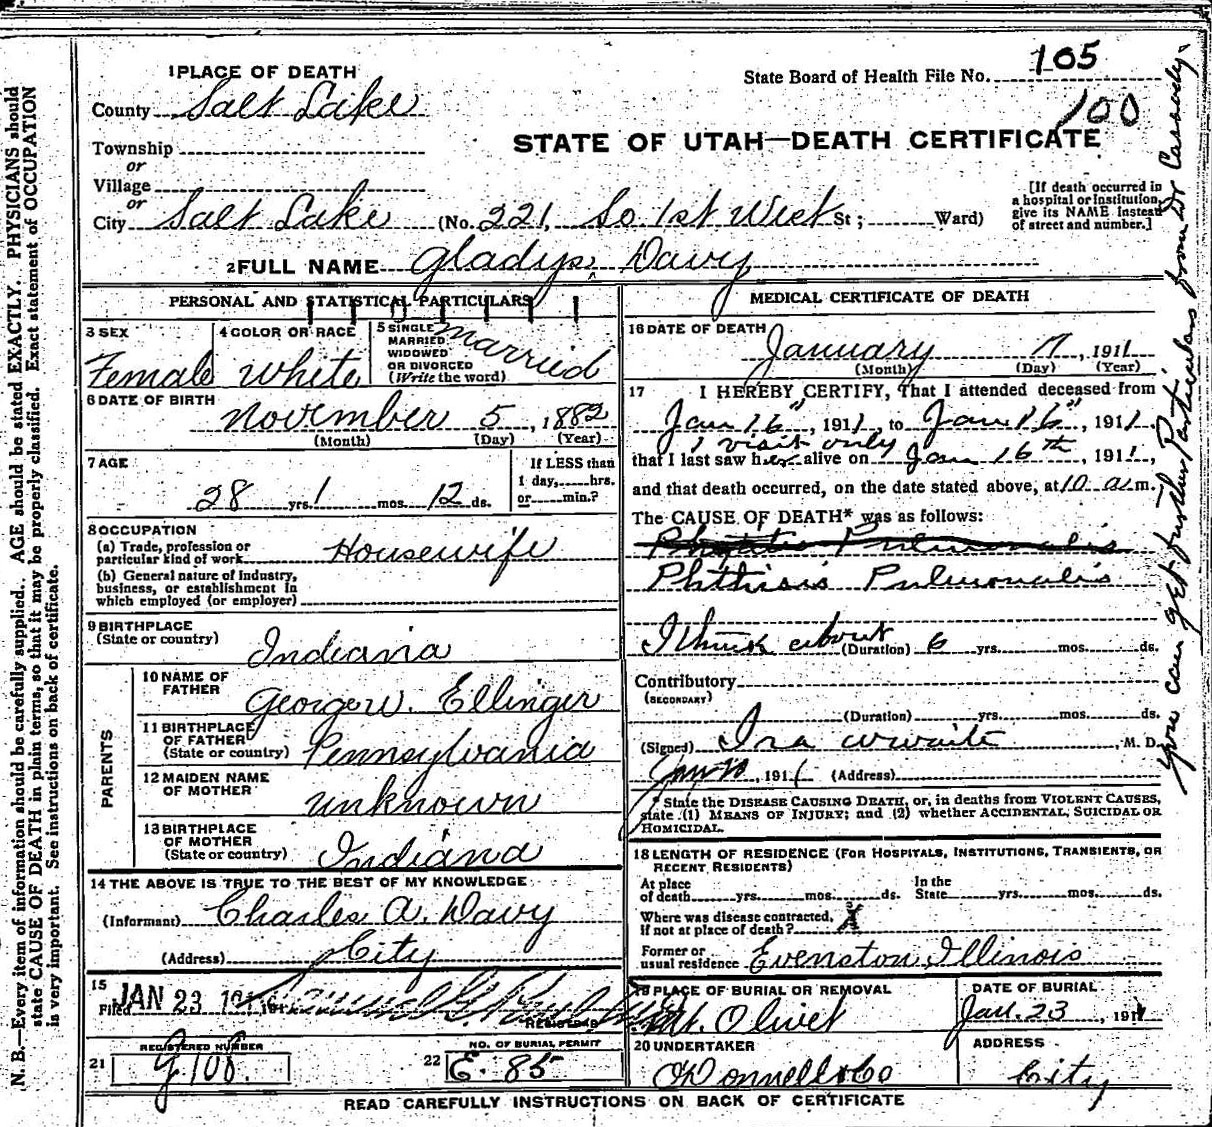 1 PLACE OF DEATH
State Board of Health File No. 105
County Salt Lake
100
STATE OF UTAH—DEATH CERTIFICATE
Township
or
Village
or
City Salt Lake (No. 221, So 1st West St; Ward)
[If death occurred in
a hospital or institution,
give its NAME instead
of street and number.]
2 FULL NAME Gladys Davy
PERSONAL AND STATISTICAL PARTICULARS
3 SEX
Female
4 COLOR OR RACE
White
5 SINGLE
MARRIED
WIDOWED
OR DIVORCED
(Write the word)
Married
6 DATE OF BIRTH
November 5, 1882
(Month) (Day) (Year)
7 AGE
28 yrs. 1 mos. 12 ds.
If LESS than
1 day, hrs.
or min.?
8 OCCUPATION
(a) Trade, profession or
particular kind of work Housewife
(b) General nature of industry,
business, or establishment in
which employed (or employer)
9 BIRTHPLACE
(State or country) Indiana
PARENTS
10 NAME OF
FATHER George W. Ellinger
11 BIRTHPLACE
OF FATHER
(State or country) Pennsylvania
12 MAIDEN NAME
OF MOTHER unknown
13 BIRTHPLACE
OF MOTHER
(State or country) Indiana
14 THE ABOVE IS TRUE TO THE BEST OF MY KNOWLEDGE
(Informant) Charles A. Davy
(Address) City
15
Filed JAN 23 191
REGISTRAR
REGISTERED NUMBER
21 J 108.
NO. OF BURIAL PERMIT
22 E. 85
MEDICAL CERTIFICATE OF DEATH
16 DATE OF DEATH
January 17, 1911
(Month) (Day) (Year)
17 I HEREBY CERTIFY, That I attended deceased from
Jan 16", 1911, to Jan 16", 1911.
1 visit only
that I last saw her alive on Jan 16th, 1911,
and that death occurred, on the date stated above, at 10 a m.
The CAUSE OF DEATH* was as follows:
Pulmonalis
Phthisis Pulmonalis
I think about (Duration) 6 yrs. mos. ds.
Contributory
(SECONDARY)
(Duration) yrs. mos. ds.
(Signed) Ira , M. D.
Jan , 1911 (Address)
* State the DISEASE CAUSING DEATH, or, in deaths from VIOLENT CAUSES,
state (1) MEANS OF INJURY; and (2) whether ACCIDENTAL, SUICIDAL OR
HOMICIDAL.
18 LENGTH OF RESIDENCE (FOR HOSPITALS, INSTITUTIONS, TRANSIENTS, OR
RECENT RESIDENTS)
At place
of death yrs. mos. ds.
In the
State yrs. mos. ds.
Where was disease contracted,
if not at place of death? X
Former or
usual residence Evenston, Illinois
19 PLACE OF BURIAL OR REMOVAL
Mt. Olivet
DATE OF BURIAL
Jan. 23, 1911
20 UNDERTAKER
O'Donnell & Co
ADDRESS
City
READ CAREFULLY INSTRUCTIONS ON BACK OF CERTIFICATE
N. B.—Every item of information should be carefully supplied. AGE should be stated EXACTLY. PHYSICIANS should
state CAUSE OF DEATH in plain terms, so that it may be properly classified. Exact statement of OCCUPATION
is very important. See instructions on back of certificate.
You can get further particulars from Dr